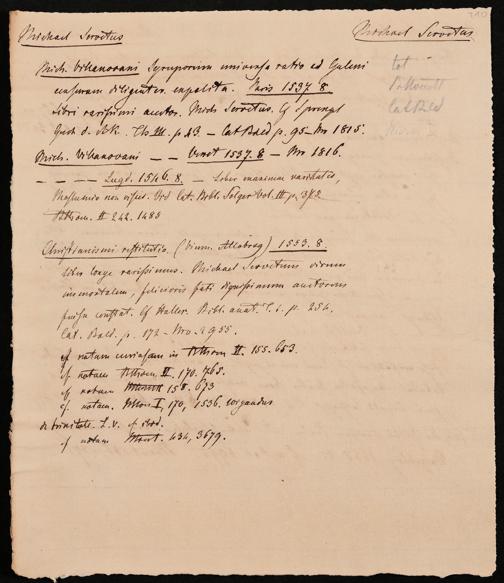 Michael Servetus Michael Servetus
Mich. Villanovani Syruporum universa ratio ad Galeni
censuram diligenter expolita. Paris 1537. 8.
Libri rarissimi auctor. Mich Servetus. Cf Sprengel
Gesch d. Ark. Th III. p. 43. — Cat Bald p. 95 — Nro 1815.
Mich. Villanovani — — Venet 1537. 8 — Nro 1816.
— — — — Lugd. 1546. 8. — Liber maximae raritatis,
non visus. Vid Cat. Bibl. Solger Vol. III p. 372
II 242. 1483
Christianismi restitutio. (Vienn. Allobrog) 1553. 8.
Liber longe rarissimus. Michael Servetum virum
immortalem, felicioris fati dignissimum auctorem
constat. Cf Haller. Bibl. anat. T. 1. p. 254.
Cat. Bald. p. 172 — Nro. 2955.
cf notam curiosam in II. 155. 653.
cf notam II. 170. 765.
cf notam 158. 673
cf. notam. I, 170, 1536.
de trinitate. L. V. cf ibid.
cf notam 434, 3679.